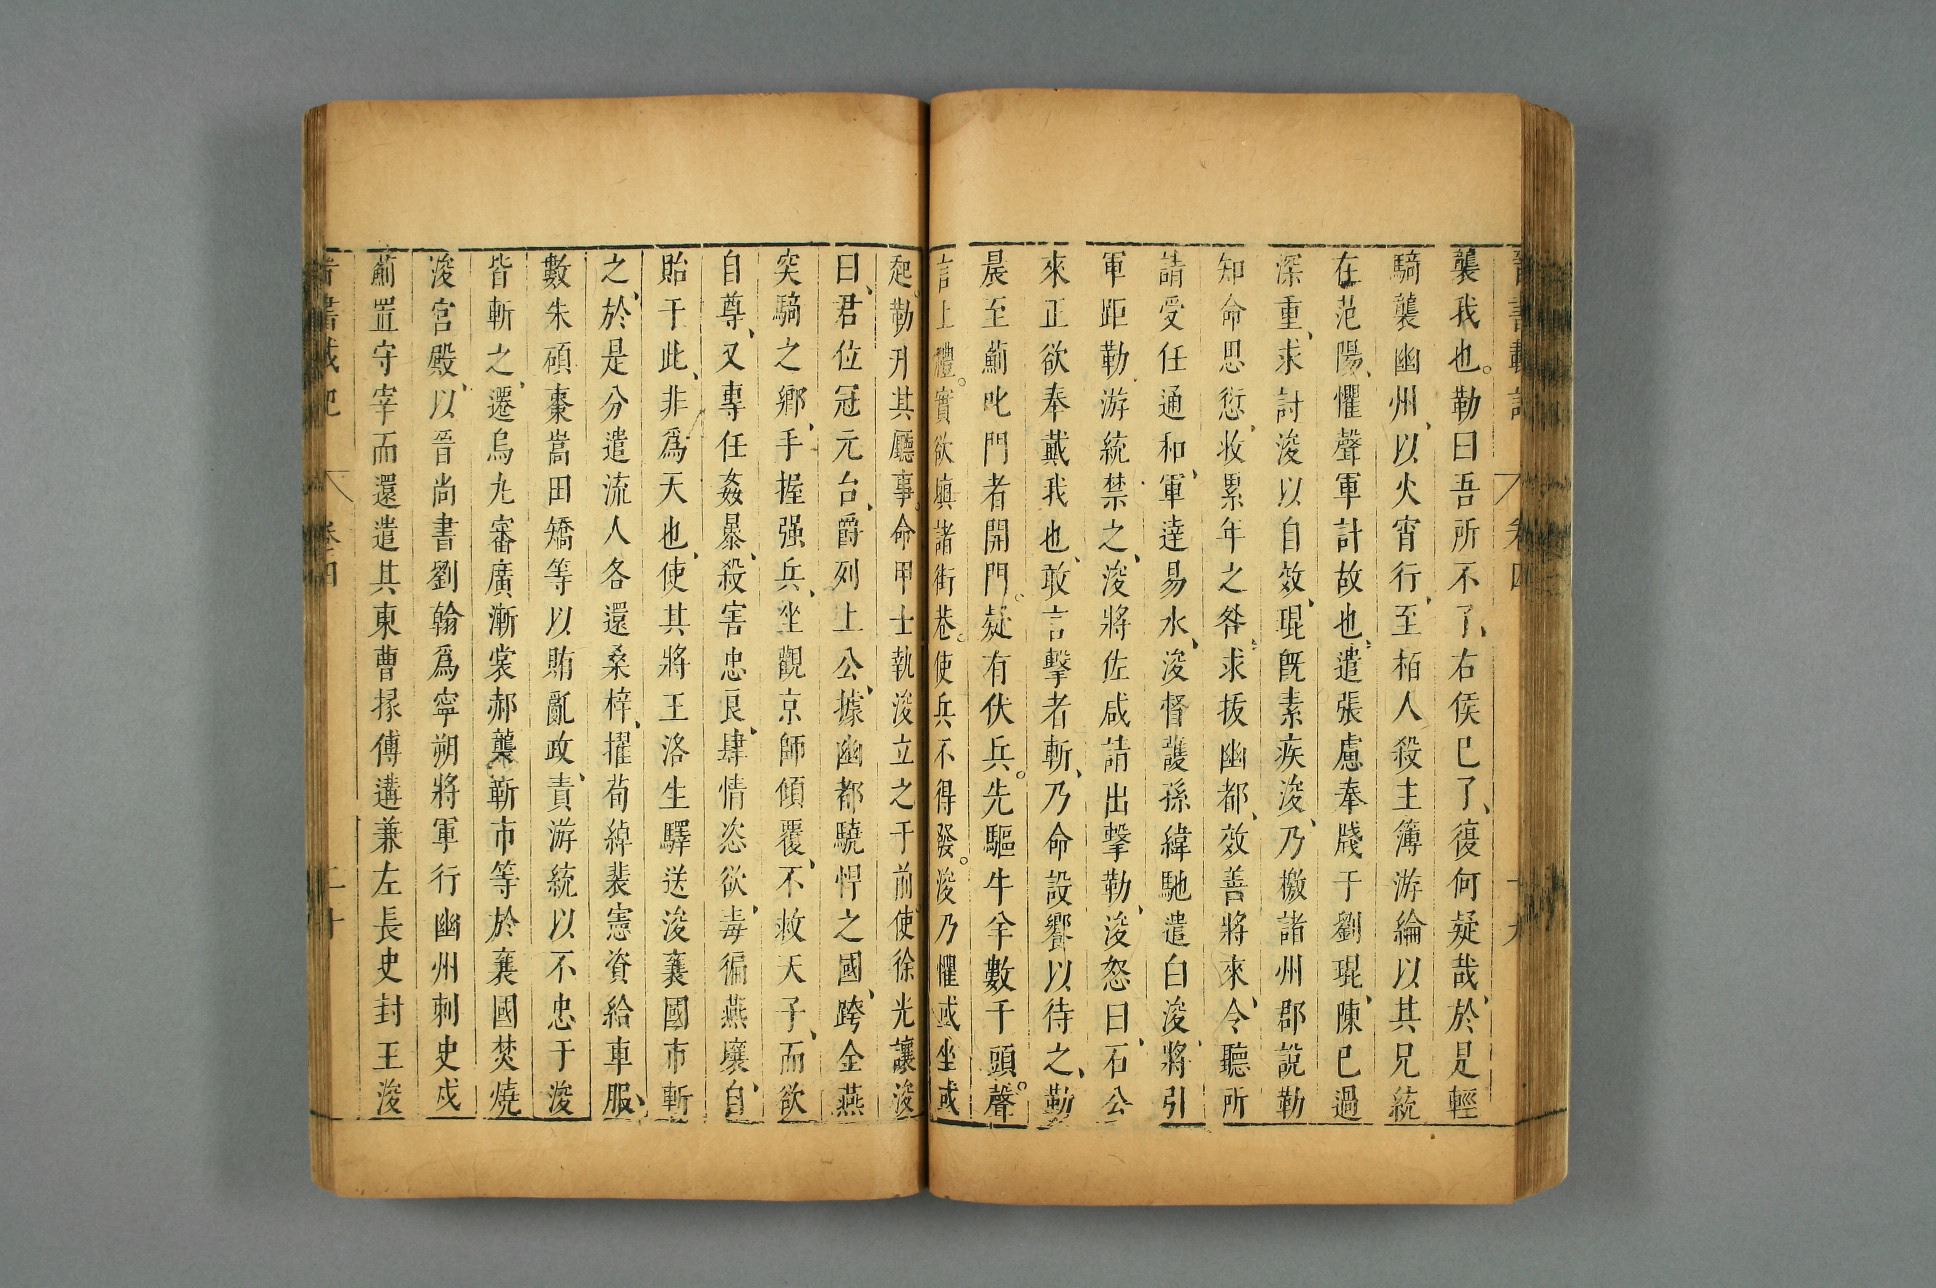 晉書載記 卷四 十九
襲我也。勒曰吾所不了、右侯已了、復何疑哉、於是輕
騎襲幽州、以火宵行、至栢人殺主簿游綸以其兄統
在范陽、懼聲軍計故也、遣張慮奉牋于劉琨、陳已過
深重、求討浚以自效、琨旣素疾浚、乃檄諸州郡說勒
知命思愆、收累年之咎、求拔幽都、效善將來、令聽所
請受任通和、軍達易水、浚督護孫緯馳遣白浚、將引
軍距勒、游統禁之、浚將佐咸請出擊勒、浚怒曰、石公
來正欲奉戴我也、敢言擊者斬、乃命設饗以待之、勒
晨至薊叱門者開門。疑有伏兵。先驅牛羊數千頭。聲
言上禮。實欲塡諸街巷。使兵不得發。浚乃懼或坐或
起。勒升其廳事。命甲士執浚立之于前。使徐光讓浚
曰、君位冠元台、爵列上公、據幽都驍悍之國、跨全燕
突騎之鄉、手握强兵、坐觀京師傾覆、不救天子、而欲
自尊、又專任姦暴、殺害忠良、肆情恣欲、毒徧燕壤、自
貽于此、非爲天也、使其將王洛生驛送浚襄國市斬
之、於是分遣流人各還桑梓、擢荀綽裴憲資給車服、
數朱碩棗嵩田矯等以賄亂政、責游統以不忠于浚
皆斬之、遷烏丸審廣漸裳郝襲靳市等於襄國焚燒
浚宮殿、以晉尚書劉翰爲寧朔將軍行幽州刺史戍
薊置守宰而還遣其東曹掾傅遘兼左長史封王浚
晉書載記 卷四 二十